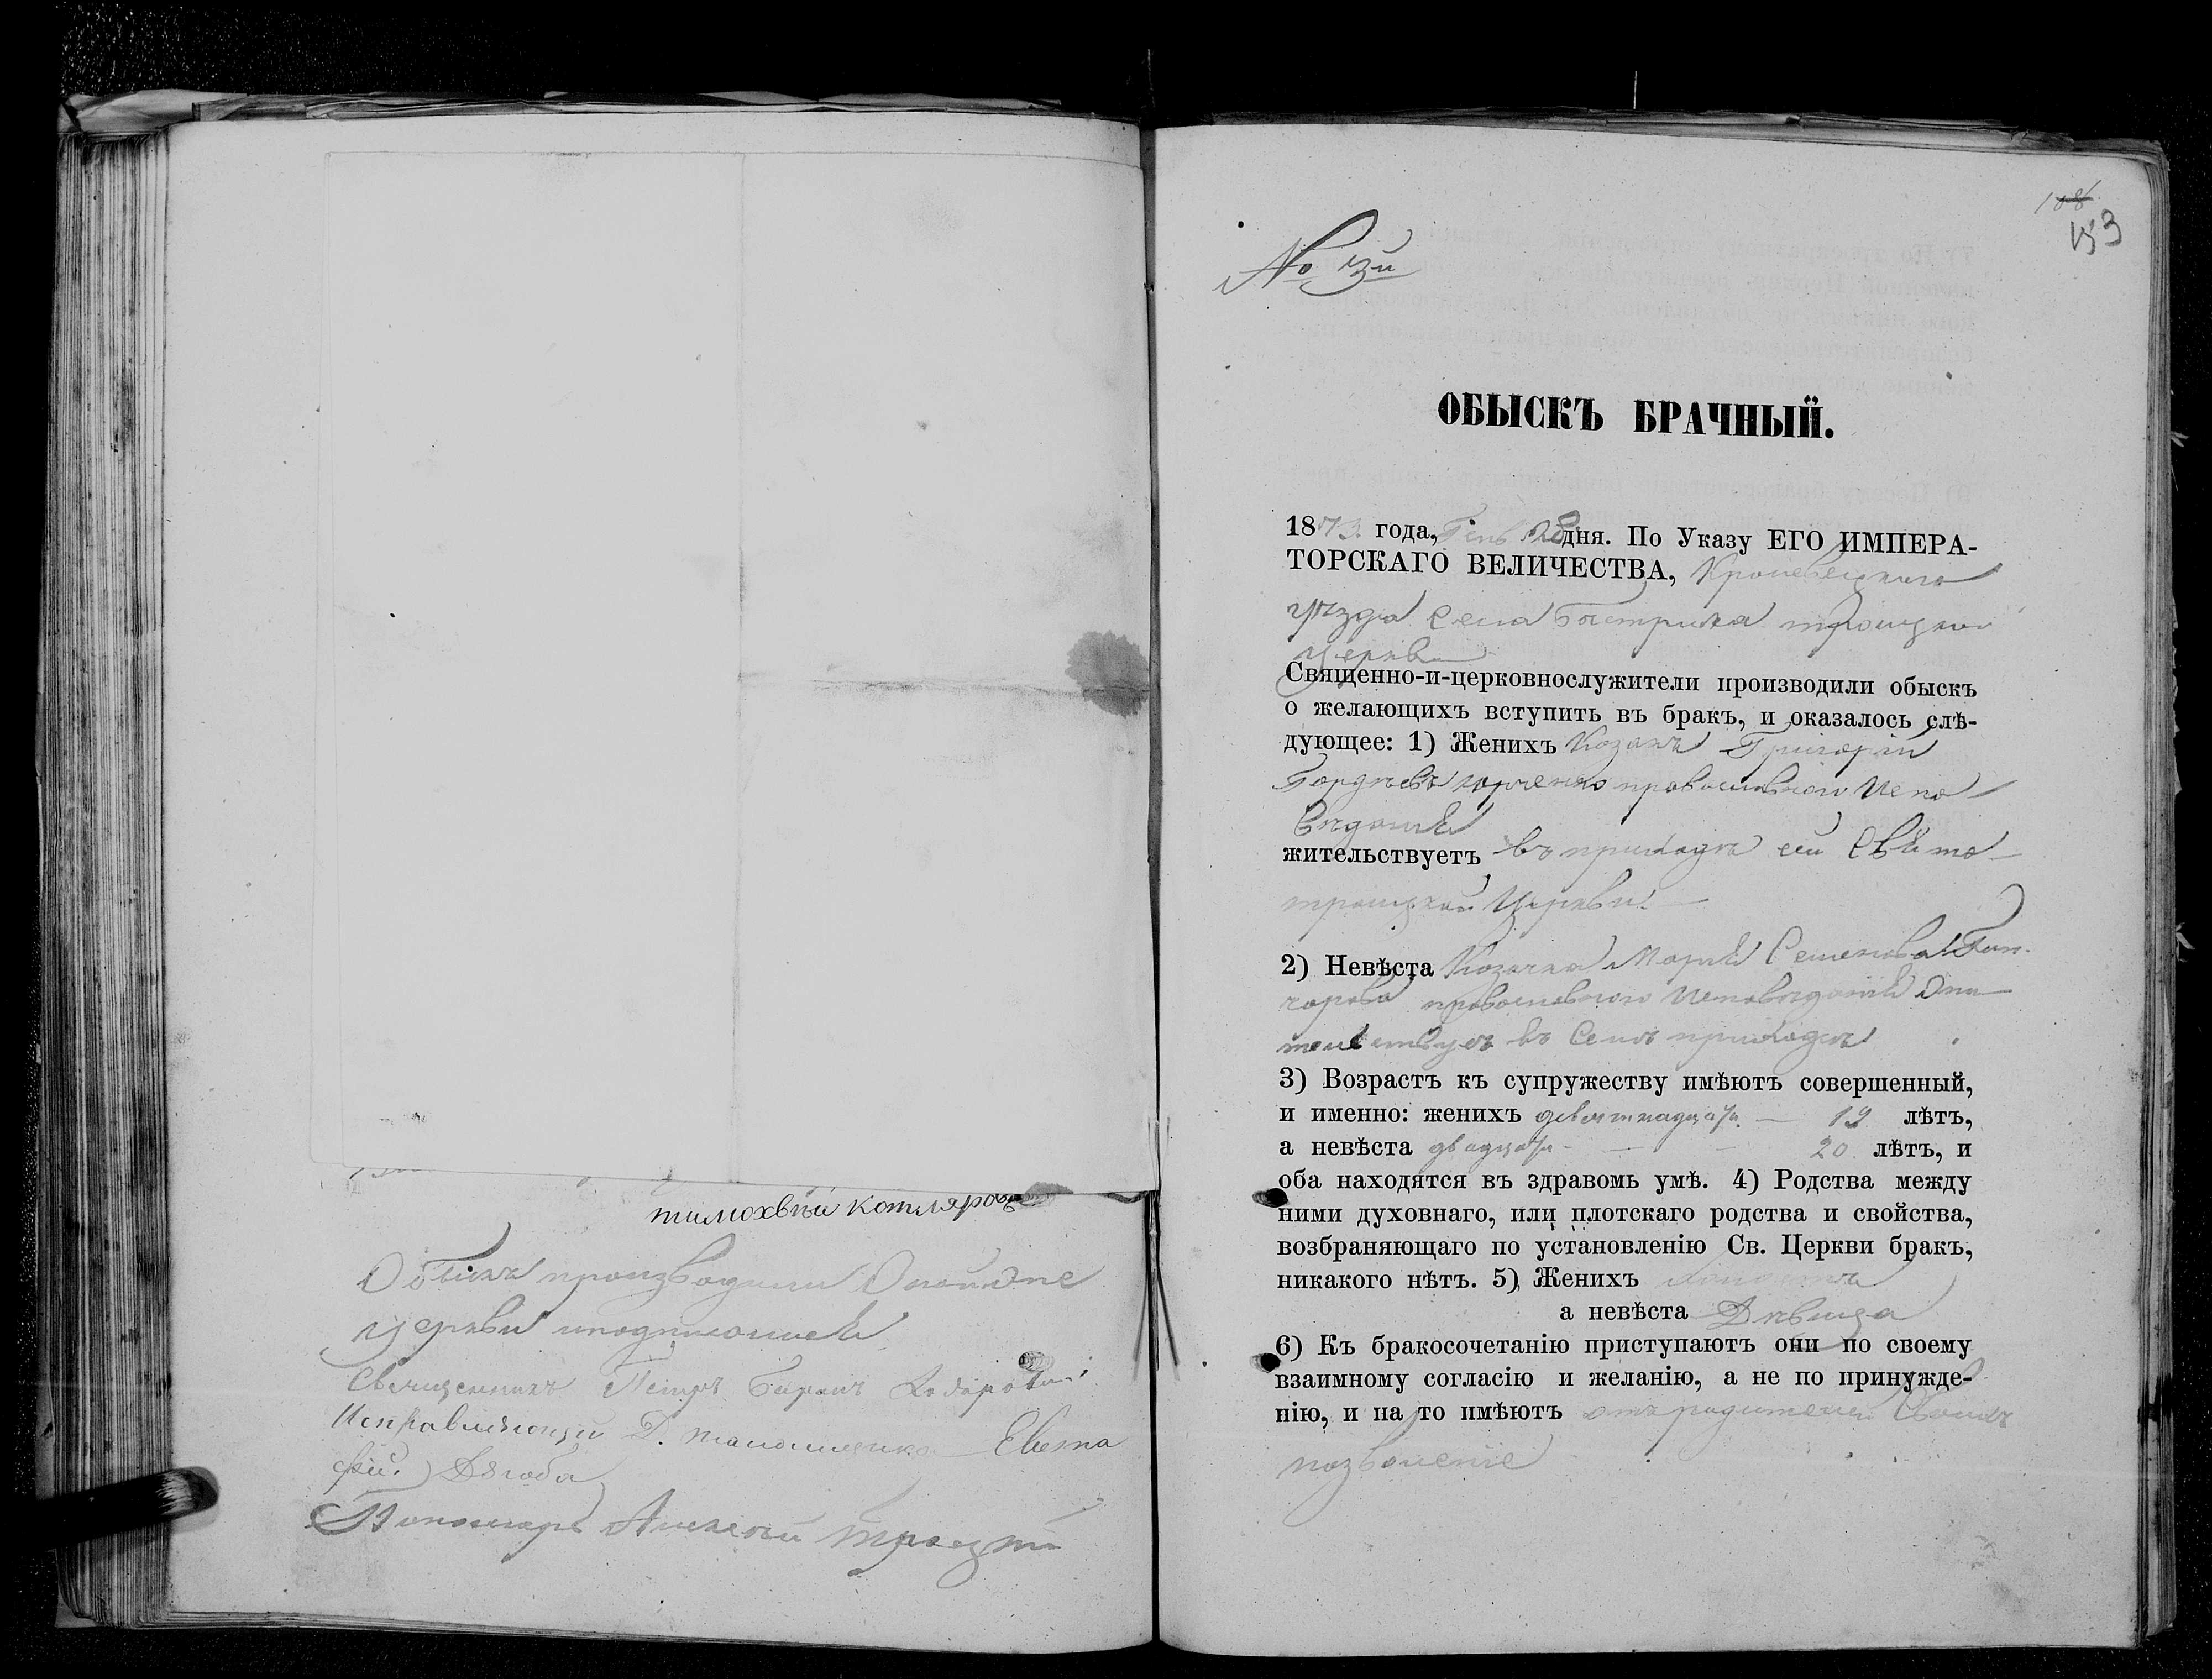 тимохвѣй котляров
Обыскъ производили Оной же
церкви иподписалися
Священникъ Петръ
Исправляющій Д. Евста
фій Дзюба
Пономарь Алексѣй Троцкій
188
183
№ 3й
ОБЫСКЪ БРАЧНЫЙ.
1873 года, Генв 28 дня. По Указу ЕГО ИМПЕРА-
ТОРСКАГО ВЕЛИЧЕСТВА, Кролевецкаго
уѣзда Села Быстрика троицкой
церкви
Священно-и-церковнослужители производили обыскъ
о желающихъ вступить въ бракъ, и оказалось слѣ-
дующее: 1) Женихъ Козакъ Григорій
Гордѣевъ православнаго Испо
вѣданія
жительствуетъ въ приходѣ сей Свято
троицкой Церкви
2) Невѣста Козачка Марія Семенова Ган
чарова православнаго Исповѣданія
въ Семъ приходѣ
3) Возрастъ къ супружеству имѣютъ совершенный,
и именно: женихъ девятнадцать 19 лѣтъ,
а невѣста двадцать 20 лѣтъ, и
оба находятся въ здравомъ умѣ. 4) Родства между
ними духовнаго, или плотскаго родства и свойства,
возбраняющаго по установленію Св. Церкви бракъ,
никакого нѣтъ. 5) Женихъ холостъ
а невѣста Дѣвица
6) Къ бракосочетанію приступаютъ они по своему
взаимному согласію и желанію, а не по принужде-
нію, и на то имѣютъ отъ родителей Своихъ
позволеніе